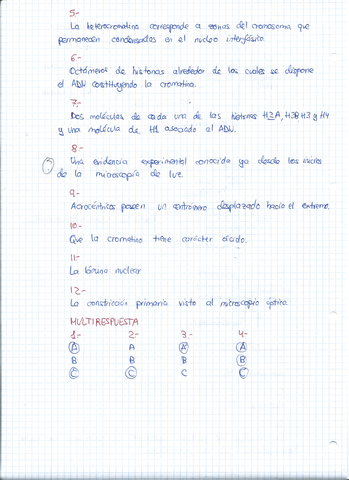 5.-
La heterocromatina corresponde a zonas del cromosoma que
permanecen condensadas en el núcleo interfásico.
6.-
Octámeros de histonas alrededor de los cuales se dispone
el ADN constituyendo la cromatina.
7.-
Dos moléculas de cada una de las histonas H2A, H2B H3 y H4
y una molécula de H1 asociado al ADN.
8.-
Una evidencia experimental conocida ya desde los inicios
de la microscopia de luz.
9.-
Acrocéntricos poseen un centrómero desplazado hacia el extremo.
10.-
Que la cromatina tiene carácter ácido.
11.-
La lámina nuclear
12.-
La constricción primaria visto al microscopio óptico.
MULTIRESPUESTA
1.- 2.- 3.- 4.-
A A A A
B B B B
C C C C